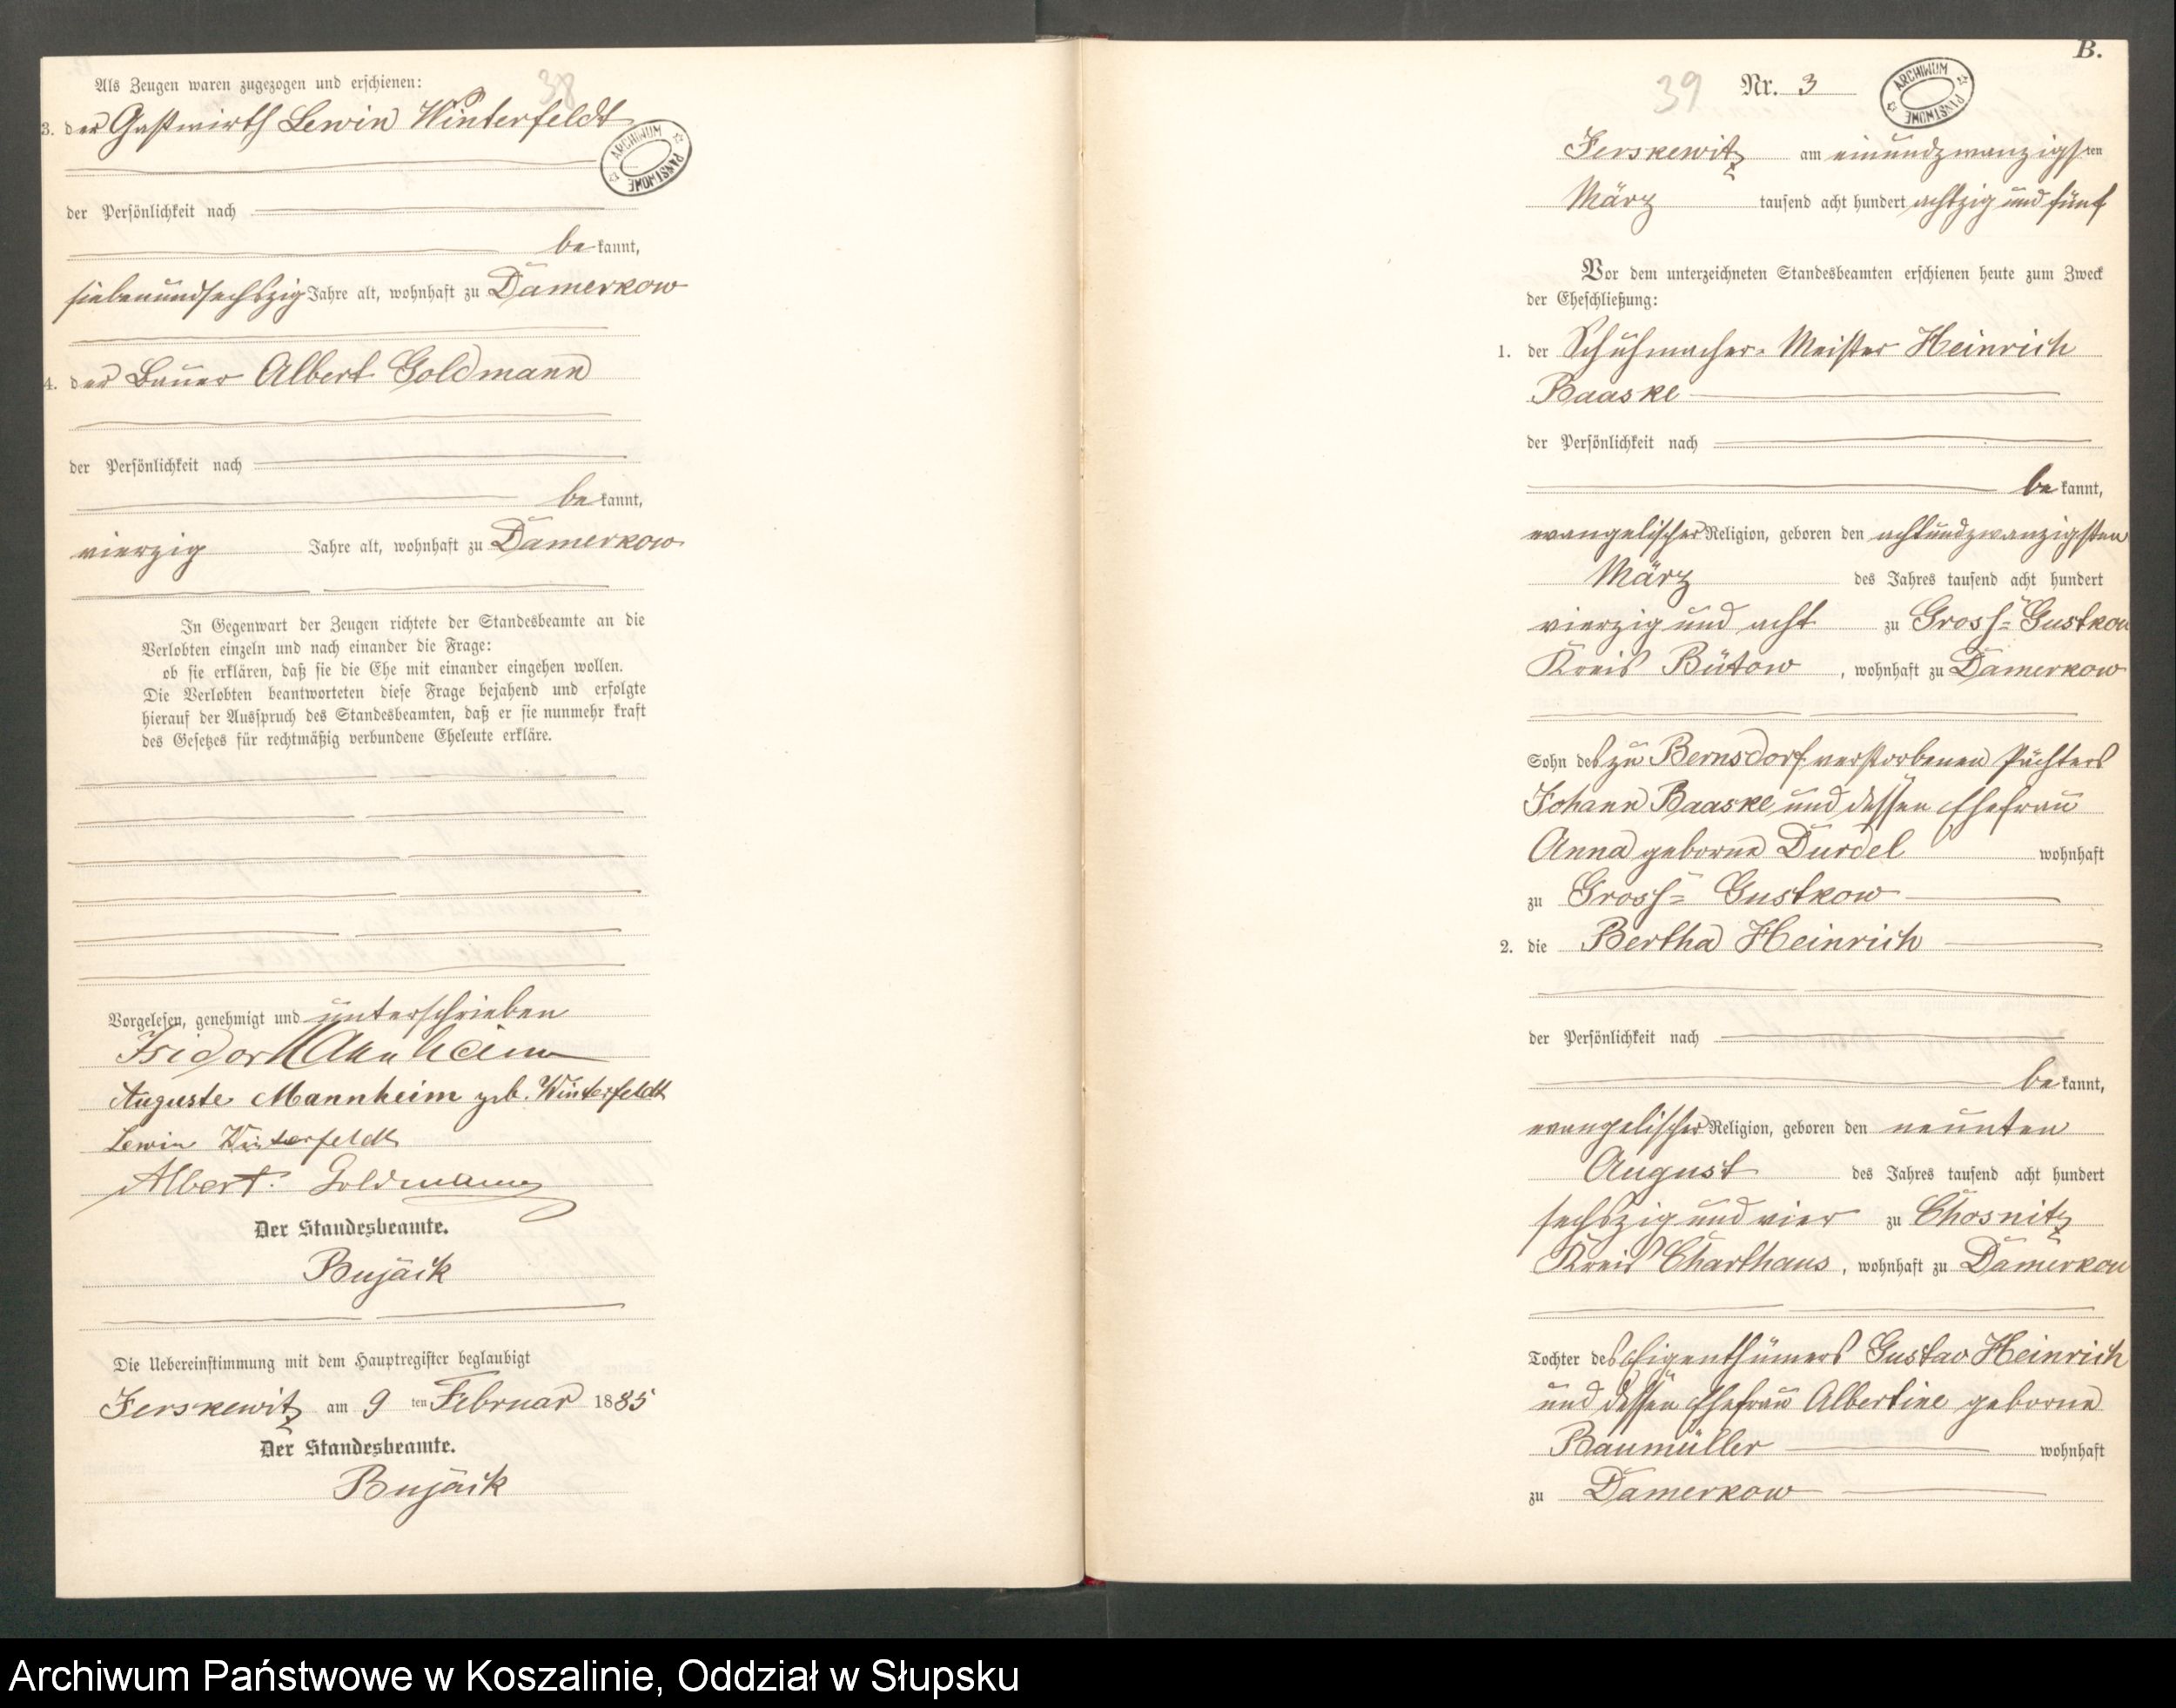 Als Zeugen waren zugezogen und erschienen:
38
3. der Gastwirth Lewin Winterfeldt
ARCHIWUM PAŃSTWOWE
der Persönlichkeit nach
be kannt,
siebenundsechszig Jahre alt, wohnhaft zu Damerkow
4. der Bauer Albert Goldmann
der Persönlichkeit nach
be kannt,
vierzig Jahre alt, wohnhaft zu Damerkow
In Gegenwart der Zeugen richtete der Standesbeamte an die
Verlobten einzeln und nach einander die Frage:
ob sie erklären, daß sie die Ehe mit einander eingehen wollen.
Die Verlobten beantworteten diese Frage bejahend und erfolgte
hierauf der Ausspruch des Standesbeamten, daß er sie nunmehr kraft
des Gesetzes für rechtmäßig verbundene Eheleute erkläre.
Vorgelesen, genehmigt und unterschrieben
Isidor Mannheim
Auguste Mannheim geb. Winterfeldt
Lewin Winterfeldt
Albert Goldmann
Der Standesbeamte.
Bujack
Die Uebereinstimmung mit dem Hauptregister beglaubigt
Jerskewitz am 9 ten Februar 1885
Der Standesbeamte.
Bujack
B.
39 Nr. 3
ARCHIWUM PAŃSTWOWE
Jerskewitz am einundzwanzigsten
März tausend acht hundert achtzig und fünf
Vor dem unterzeichneten Standesbeamten erschienen heute zum Zweck
der Eheschließung:
1. der Schuhmacher-Meister Heinrich
Baaske
der Persönlichkeit nach
be kannt,
evangelischer Religion, geboren den achtundzwanzigsten
März des Jahres tausend acht hundert
vierzig und acht zu Gross-Gustkow
Kreis Bütow, wohnhaft zu Damerkow
Sohn des zu Bernsdorf verstorbenen Pächters
Johann Baaske und dessen Ehefrau
Anna geborne Durdel wohnhaft
zu Gross-Gustkow
2. die Bertha Heinrich
der Persönlichkeit nach
be kannt,
evangelischer Religion, geboren den neunten
August des Jahres tausend acht hundert
sechszig und vier zu Chosnitz
Kreis Charthaus, wohnhaft zu Damerkow
Tochter des Eigenthümers Gustav Heinrich
und dessen Ehefrau Albertine geborne
Baumüller wohnhaft
zu Damerkow
Archiwum Państwowe w Koszalinie, Oddział w Słupsku